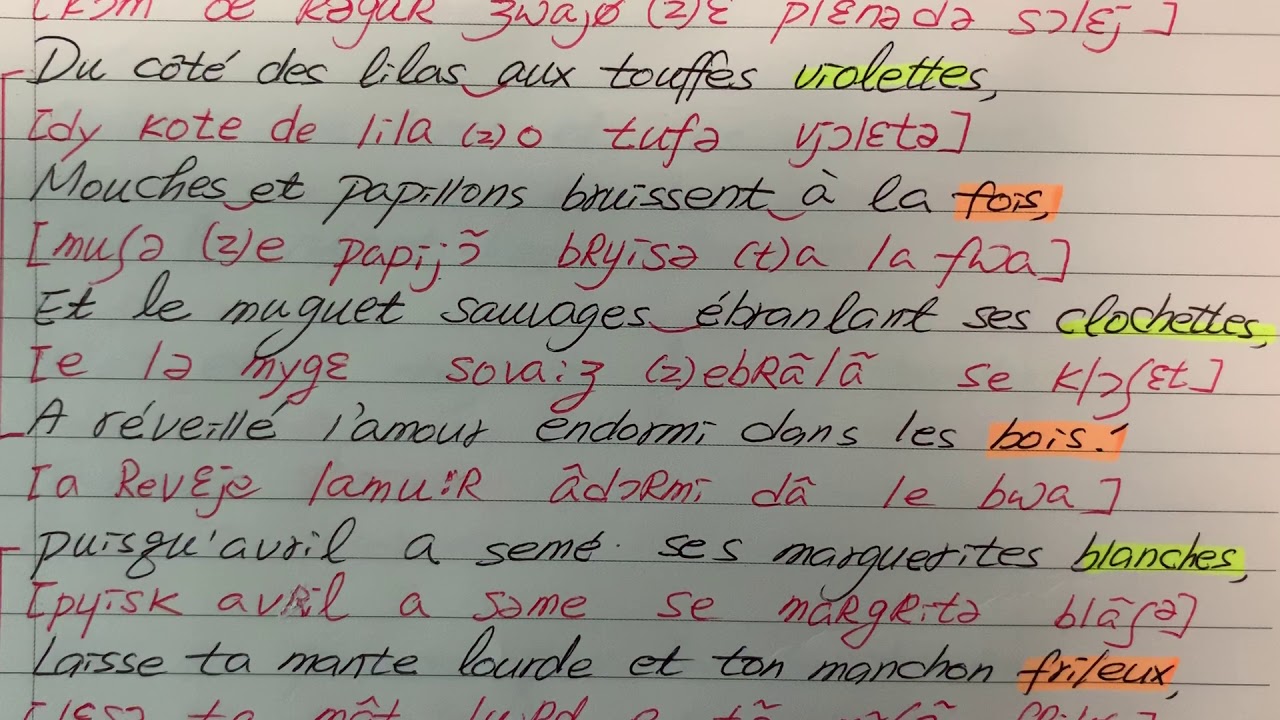 [kɔm de Rəgar ʒwajø (z)ɛ plɛnədə sɔlɛj]
Du côté des lilas aux touffes violettes,
[dy kote de lila (z)o tufə vjɔlɛtə]
Mouches et papillons bruissent à la fois,
[muʃə (z)e papijɔ̃ bRyisə (t)a la fwa]
Et le muguet sauvages ébranlant ses clochettes,
[e lə mygɛ sova:ʒ (z)ebRãlã se klɔʃɛt]
A réveillé l'amour endormi dans les bois.
[a Revɛje lamu:R ãdɔRmi dã le bwa]
Puisqu'avril a semé ses marguerites blanches,
[pyisk avRil a səme se maRgRitə blãʃə]
Laisse ta mante lourde et ton manchon frileux,